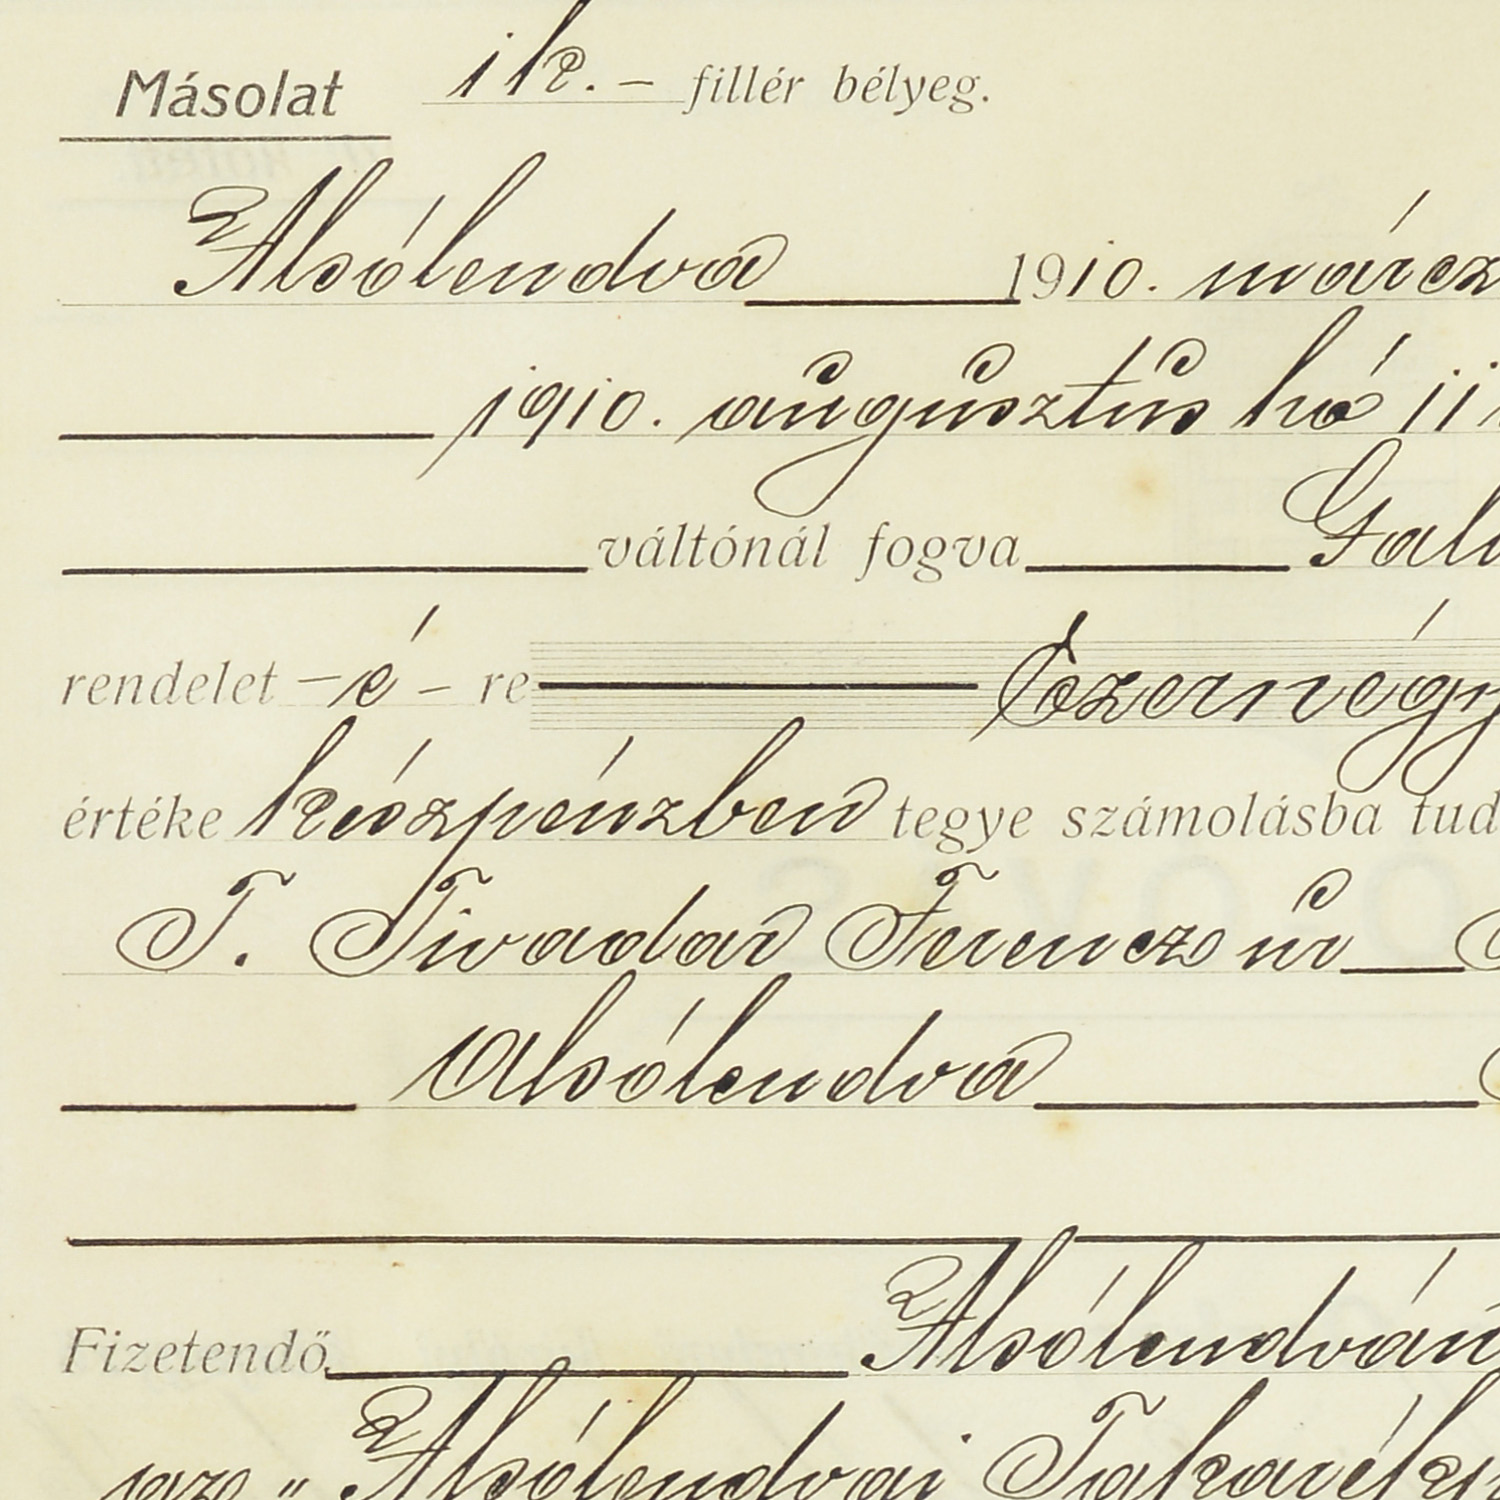 Másolat 1 k. – fillér bélyeg.
Alsólendva 1910. márcz
1910. augusztus hó 11
váltónál fogva Gal
rendelet – é – re Ezernégy
értéke készpénzben tegye számolásba tud
T. Tivadar Ferencz úr
Alsólendva
Fizetendő Alsólendván
az „Alsólendvai Takarékp